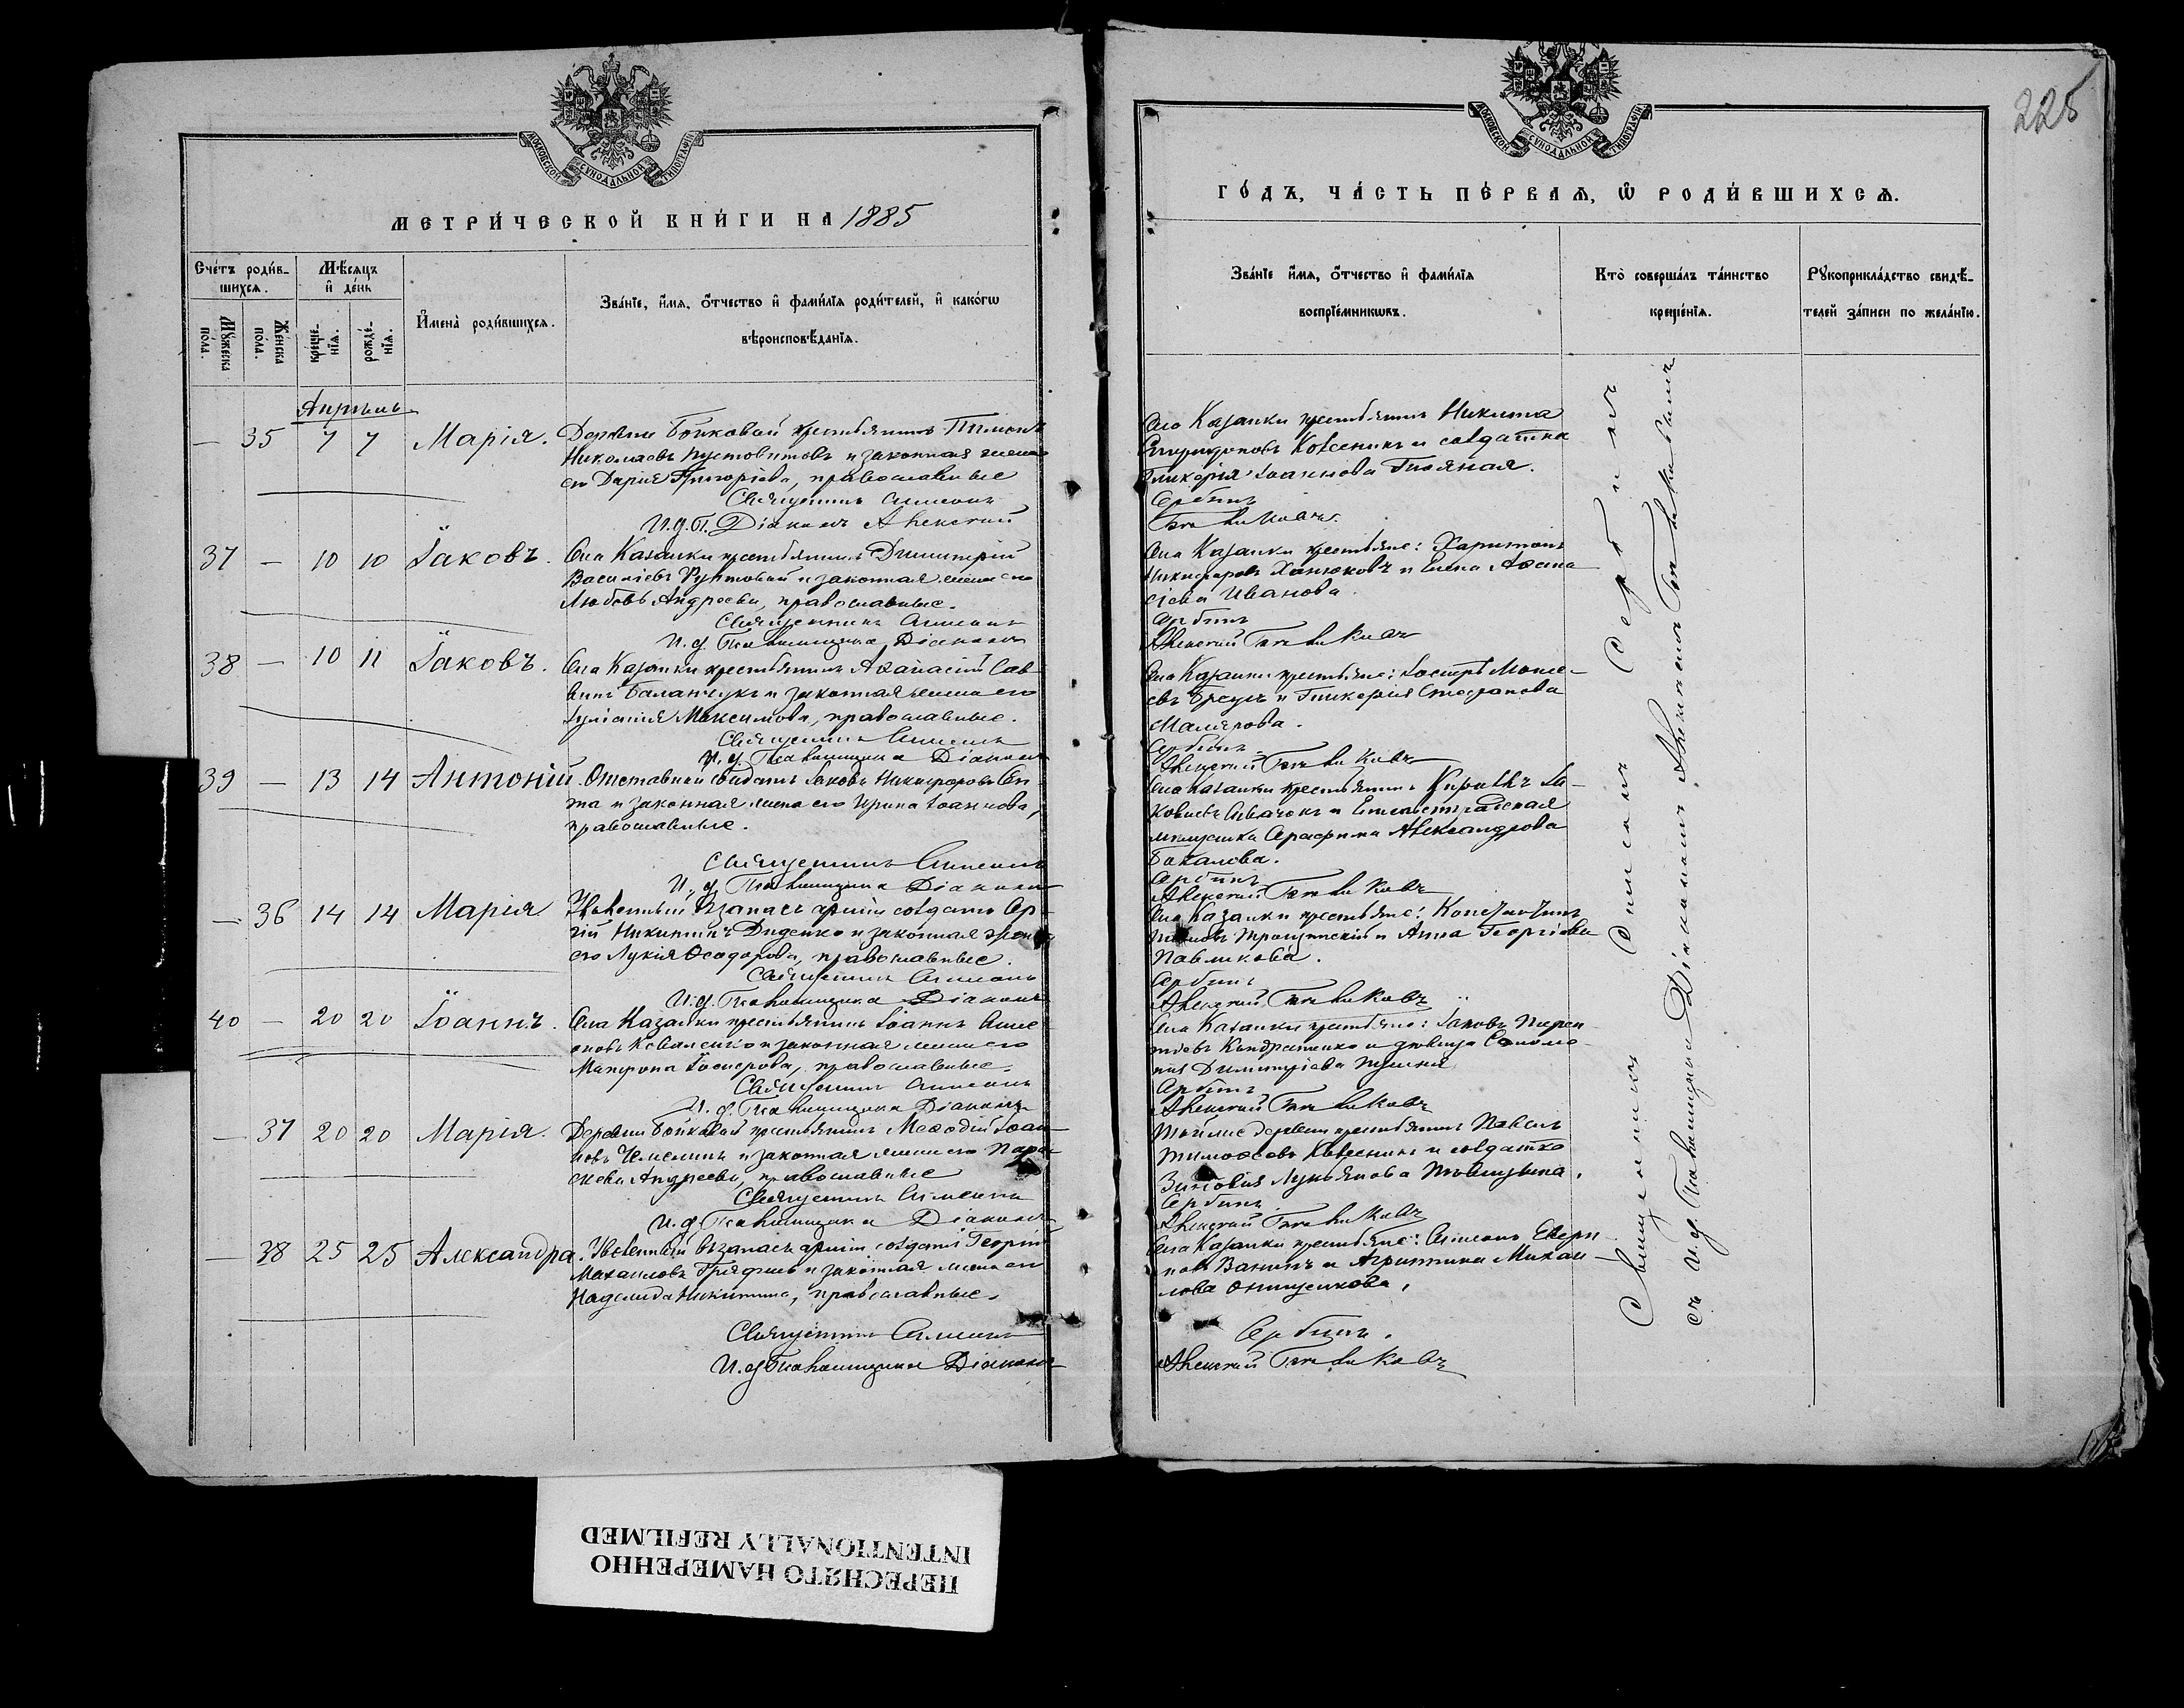 МОСКОВСКОЙ СУНОДАЛЬНОЙ ТИПОГРАФІИ
МЕТРИ́ЧЕСКОЙ КНИ́ГИ НА 1885
Сче́тъ роди́в-
шихся.
Мѣ́сяцъ
и҆ де́нь
Мꙋ́жеска
по́ла.
Же́нска
по́ла.
креще-
нїѧ.
рожде́-
нїѧ.
И҆мена̀ роди́вшихсѧ.
Зва́нїе, и҆́мѧ, ѻ҆́тчество и҆ фами́лїѧ роди́телей, и҆ како́гѡ
вѣроисповѣ́данїѧ.
Апрѣль
— 35 7 7 Марія. Деревни Бойковой крестьянинъ
Николаевъ Пустовитовъ и законная жена
его Дарія Григоріева, православные
Священникъ Симеонъ
И.д.П. Діаконъ Алексій
37 — 10 10 Іаковъ. Села Казанки крестьянинъ Димитрій
Василіевъ и законная жена его
Любовь Андреева, православные.
Священникъ Симеонъ
И.д. Псаломщика Діаконъ
38 — 10 11 Іаковъ. Села Казанки крестьянинъ Аѳанасій Сав-
винъ Баланчукъ и законная жена его
Іуліанія Максимова, православные.
Священникъ Симеонъ
И.д. Псаломщика Діаконъ
39 — 13 14 Антоній. Отставной солдатъ Іаковъ Никифоровъ
и законная жена его Ирина Іоаннова,
православные.
Священникъ Симеонъ
И.д. Псаломщика Діаконъ
— 36 14 14 Марія Уволенный въ запасъ арміи солдатъ Сер-
гій Никитинъ Диденко и законная жена
его Лукія Ѳеодорова, православные.
Священникъ Симеонъ
И.д. Псаломщика Діаконъ
40 — 20 20 Іоаннъ. Села Казанки крестьянинъ Іоаннъ Симе-
оновъ Коваленко и законная жена его
Матрона Іосифова, православные.
Священникъ Симеонъ
И.д. Псаломщика Діаконъ
— 37 20 20 Марія. Деревни Бойковой крестьянинъ Меѳодій Іоан-
новъ и законная жена его Пара-
скева Андреева, православные
Священникъ Симеонъ
И.д. Псаломщика Діаконъ
— 38 25 25 Александра. Уволенный въ запасъ арміи солдатъ Георгій
Михаиловъ и законная жена его
Надежда Никитина, православные.
Священникъ Симеонъ
И.д. Псаломщика Діаконъ
225
МОСКОВСКОЙ СУНОДАЛЬНОЙ ТИПОГРАФІИ
ГО́ДЪ, ЧА́СТЬ ПЕ́РВАѦ, Ѡ҆ РОДИ́ВШИХСѦ.
Зва́нїе и҆́мѧ, ѻ҆́тчество и҆ фами́лїѧ
воспрїе́мникѡвъ.
Кто̀ соверша́лъ та́инство
креще́нїѧ.
Рꙋкоприкла́дство свидѣ́-
телей за́писи по жела́нїю.
Села Казанки крестьянинъ Никита
Спиридоновъ Колесникъ и солдатка
Гликерія Іоаннова
Сербинъ
Села Казанки крестьяне: Харитонъ
Никифоровъ Ханюковъ и Елена Аѳана-
сіева Иванова.
Сербинъ
Алексій
Села Казанки крестьяне: Іосифъ Моисе-
евъ и Гликерія Стефанова
Малярова.
Сербинъ
Алексій
Села Казанки крестьянинъ Кириллъ Іа-
ковлевъ и Елисаветградская
мѣщанка Серафима Александрова
Бакалова.
Сербинъ
Алексій
Села Казанки крестьяне: Константинъ
и Анна Георгіева
Павликова.
Сербинъ
Алексій
Села Казанки крестьяне: Іаковъ Терен-
тіевъ Кондратенко и дѣвица Соломо-
нія Димитріева
Сербинъ
Алексій
Той же деревни крестьянинъ Павелъ
Тимоѳеевъ Колесникъ и солдатка
Зиновія Лукьянова
Сербинъ
Алексій
Села Казанки крестьяне: Симеонъ
и Агриппина Михаи-
лова Онищенкова.
Сербинъ.
Алексій
Священникъ Симеонъ Сербинъ
съ и.д. Псаломщика Діакономъ Алексіемъ
ПЕРЕСНЯТО НАМЕРЕННО
INTENTIONALLY REFILMED